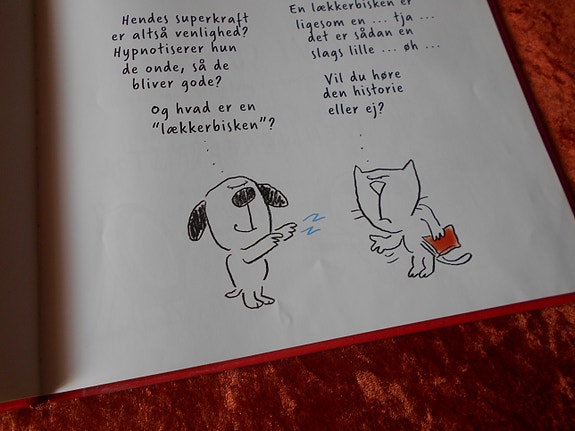 Hendes superkraft
er altså venlighed?
Hypnotiserer hun
de onde, så de
bliver gode?
Og hvad er en
"lækkerbisken"?
En lækkerbisken er
ligesom en ... tja ...
det er sådan en
slags lille ... øh ...
Vil du høre
den historie
eller ej?